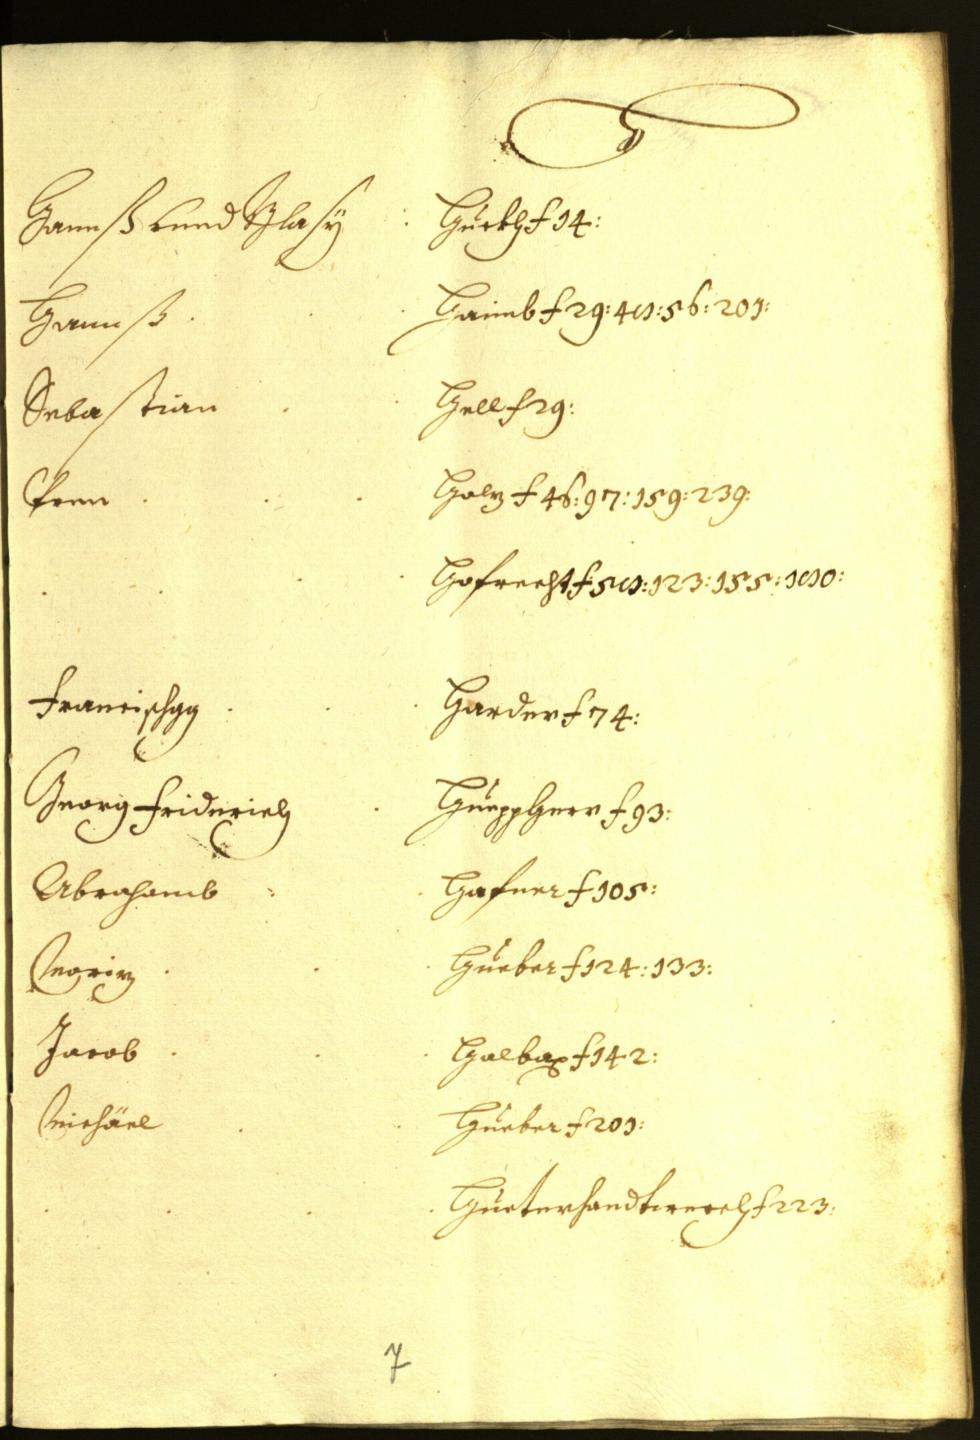 H
Hannß unnd Blasÿ : Hückh f 14:
Hannß . . . Haimb f 29: 48: 56: 201:
Sebastian . . Hell f 29:
Prenn . . . Holz f 46: 97: 159: 239:
. . . Hofrecht f 58: 123: 155: 180:
Francischgg . . . Harder f 74:
Georg Friderich . Hüeppherr f 93:
Abrahamb : . Hafner f 105:
Moriz . . . Hueber f 124: 133:
Jacob . . . Halbax f 142:
Michäel . . Hueber f 201:
. . . . Hueterhandtwerch f 223:
7